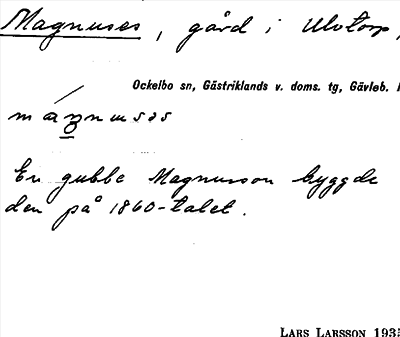 Magnuses, gård i Ulvtorp,
Ockelbo sn, Gästriklands v. doms. tg, Gävleb. l
En gubbe Magnusson byggde
den på 1860-talet.
LARS LARSSON 1935